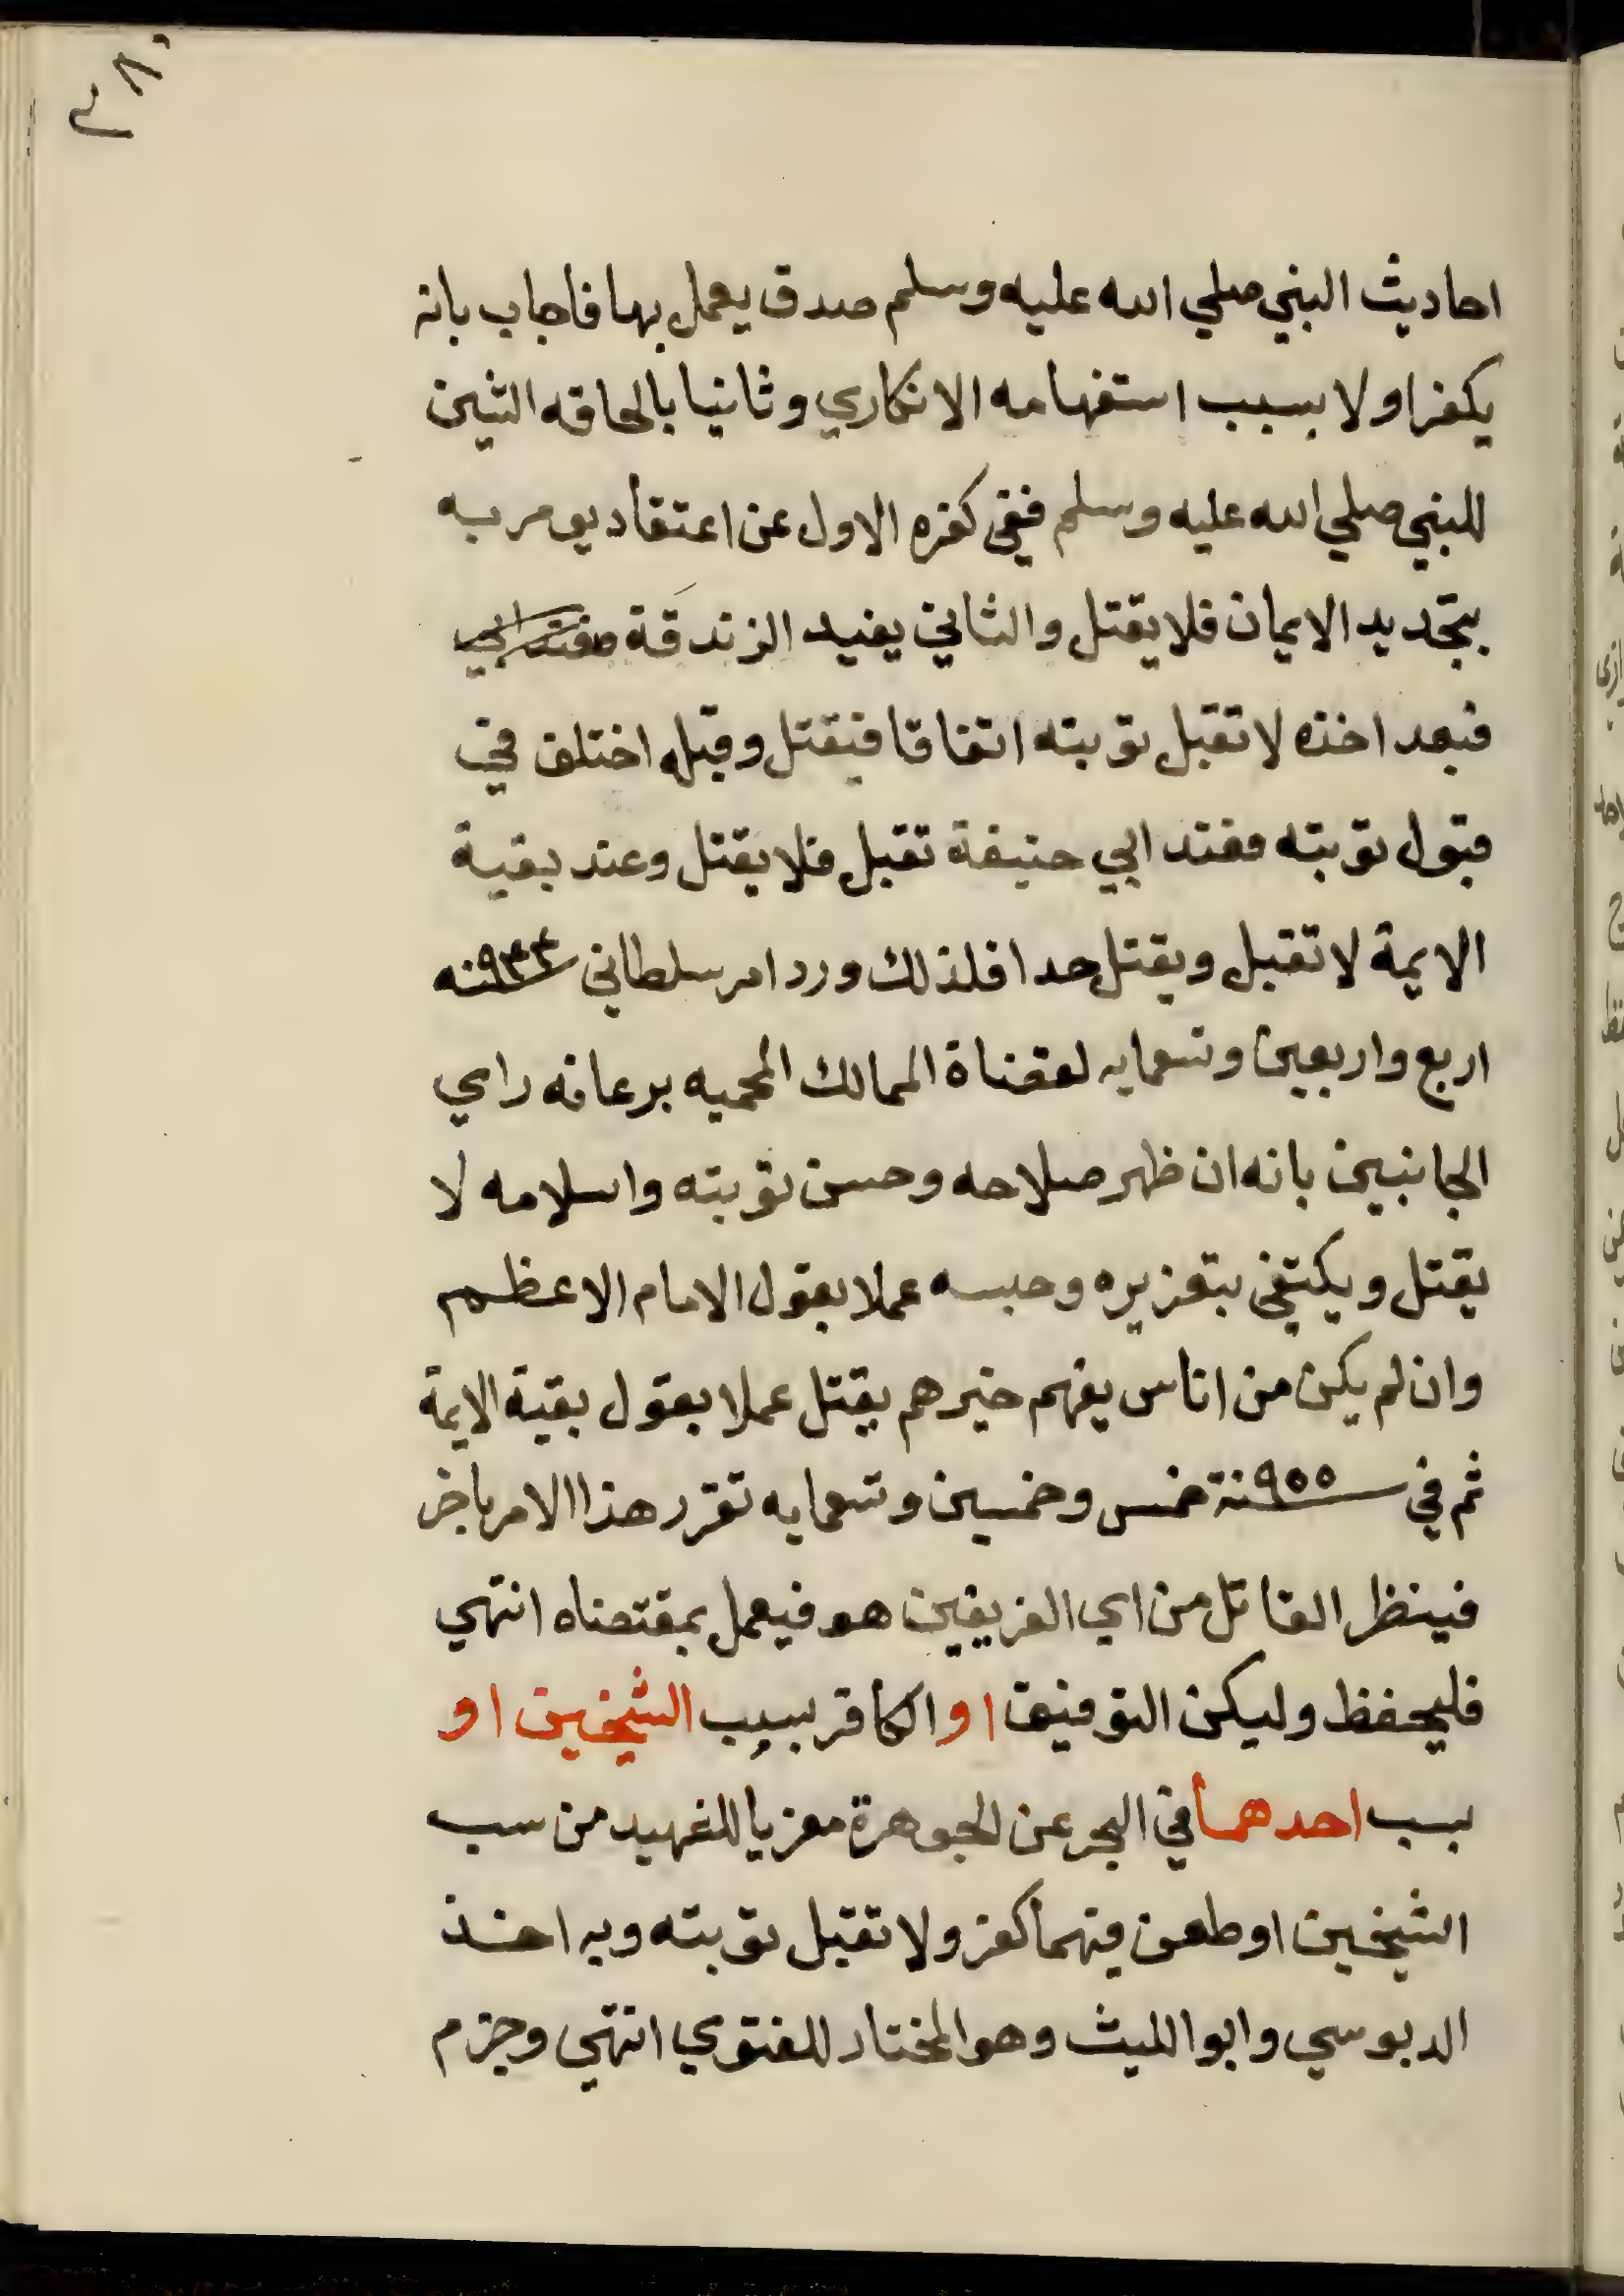 ٣٨٠
احاديث النبي صلي الله عليه وسلم صدق يعمل بها فاجاب بانه
يكفر اولا بسبب استفهامه الانكاري وثانيا بالحاقه الشين
للنبي صلي الله عليه وسلم ففي كفره الاول عن اعتقاد يومر به
بتجديد الايمان فلا يقتل والثاني يفيد الزندقة فعند ابي
فبعد اخذه لا تقبل توبته اتفاقا فيقتل وقبله اختلف في
قبول توبته فعند ابي حنيفة تقبل فلا يقتل وعند بقية
الايمة لا تقبل ويقتل حدا فلذلك ورد امر سلطاني ٩٤٤سنه
اربع واربعين وتسعمايه لقضاة الممالك المحميه برعاية راي
الجانبين بانه ان ظهر صلاحه وحسن توبته واسلامه لا
يقتل ويكتفي بتعزيره وحبسه عملا بقول الامام الاعظم
وان لم يكن من اناس يفهم خيرهم يقتل عملا بقول بقية الايمة
ثم في ٩٥٥سنة خمس وخمسين وتسعمايه تقرر هذا الامر باخر
فينظر القاتل من اي الفريقين هو فيعمل بمقتضاه انتهي
فليحفظ وليكن التوفيق او الكافر بسبب الشيخين او
بسب احدهما في البحر عن الجوهرة معزيا للشهيد من سب
الشيخين او طعن فيهما كفر ولا تقبل توبته وبه اخذ
الدبوسي وابو الليث وهو المختار للفتوي انتهي وجزم